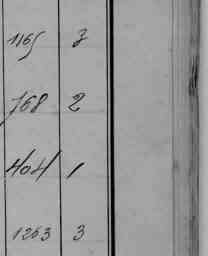 1165 3
768 2
404 1
1263 3